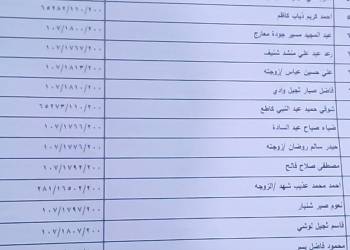 احمد كريم ذياب كاظم ٦٥٢٨٢/١١٠/٢٠٠
عبد المجيد مسير جودة معارج ١٠٧/١٨٠٠/٢٠٠
رعد عبد علي منشد شنيف ١٠٧/١٧٦٧/٢٠٠
علي حسين عباس /زوجته ١٠٧/١٨١٣/٢٠٠
فاضل صبار ثجيل وادي ١٠٧/١٨١٠/٢٠٠
شوقي حميد عبد النبي كاطع ٦٥٢٧٣/١١٠/٢٠٠
ضياء صباح عبد السادة ١٠٧/١٧٦٦/٢٠٠
حيدر سالم روضان /زوجته ١٠٧/١٧٧٦/٢٠٠
مصطفى صلاح فالح ١٠٧/١٧٩٢/٢٠٠
احمد محمد عذيب شهد /الزوجه ٢٨١/١٦٥٠٢/٢٠٠
نعوم صبر شنيار ١٠٧/١٧٩٧/٢٠٠
قاسم ثجيل نوشي ١٠٧/١٨٠٧/٢٠٠
محمود فاضل